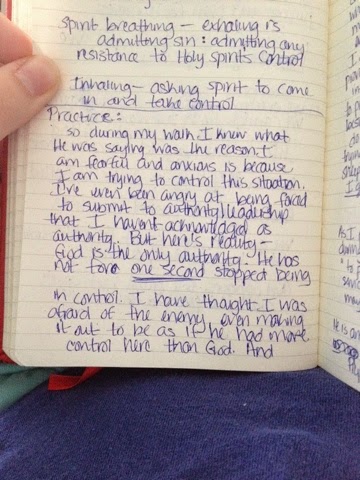 Spirit breathing - exhaling is
admitting sin: admitting any
resistance to Holy Spirits control
Inhaling - asking spirit to come
in and take control
Practice:
so during my walk I knew what
He was saying was the reason I
am fearful and anxious is because
I am trying to control this situation.
I've even been angry at being forced
to submit to authority/leadership
that I haven't acknowledged as
authority. But here's reality -
God is the only authority. He has
not for one second stopped being
in control. I have thought I was
afraid of the enemy, even making
it out to be as if he had more
control here than God. And